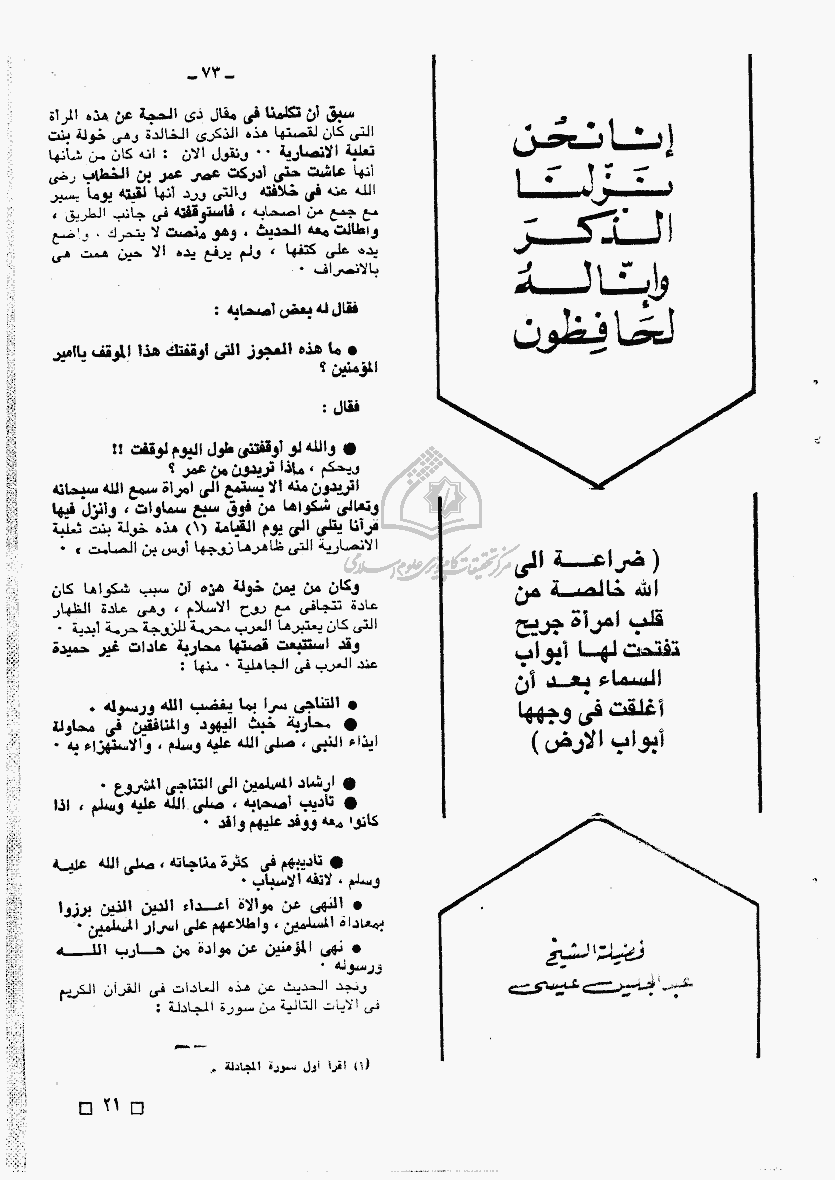 إنا نحن
نزلنا
الذكر
وإنا له
لحافظون
( ضراعة الى
الله خالصة من
قلب امرأة جريح
تفتحت لها أبواب
السماء بعد أن
أغلقت فى وجهها
أبواب الارض )
فضيلة الشيخ
عبد الجليل عيسى
ـ ٧٣ ـ
سبق أن تكلمنا فى مقال ذى الحجة عن هذه المرأة
التى كان لقصتها هذه الذكرى الخالدة وهى خولة بنت
ثعلبة الانصارية ٠٠ ونقول الآن : انه كان من شأنها
أنها عاشت حتى أدركت عصر عمر بن الخطاب رضى
الله عنه فى خلافته والتى ورد أنها لقيته يوما يسير
مع جمع من اصحابه ، فاستوقفته فى جانب الطريق ،
واطالت معه الحديث ، وهو منصت لا يتحرك . واضع
يده على كتفها ، ولم يرفع يده الا حين همت هى
بالانصراف ٠
فقال له بعض أصحابه :
● ما هذه العجوز التى أوقفتك هذا الموقف ياامير
المؤمنين ؟
فقال :
● والله لو أوقفتنى طول اليوم لوقفت !!
ويحكم ، ماذا تريدون من عمر ؟
أتريدون منه ألا يستمع الى امرأة سمع الله سبحانه
وتعالى شكواها من فوق سبع سماوات ، وأنزل فيها
قرآنا يتلى الى يوم القيامة (١) هذه خولة بنت ثعلبة
الانصارية التى ظاهرها زوجها أوس بن الصامت » ٠
وكان من يمن خولة هزه أن سبب شكواها كان
عادة تتجافى مع روح الاسلام ، وهى عادة الظهار
التى كان يعتبرها العرب محرمة للزوجة حرمة أبدية ٠
وقد استتبعت قصتها محاربة عادات غير حميدة
عند العرب فى الجاهلية ٠ منها :
● التناجى سرا بما يغضب الله ورسوله ٠
● محاربة خبث اليهود والمنافقين فى محاولة
ايذاء النبى ، صلى الله عليه وسلم ، والاستهزاء به ٠
● ارشاد المسلمين الى التناجى المشروع ٠
● تأديب أصحابه ، صلى الله عليه وسلم ، اذا
كانوا معه ووفد عليهم وافد ٠
● تأديبهم فى كثرة مناجاته ، صلى الله عليه
وسلم ، لاتفه الاسباب ٠
● النهى عن موالاة أعداء الدين الذين برزوا
بمعاداة المسلمين ، واطلاعهم على اسرار المسلمين ٠
● نهى المؤمنين عن موادة من حارب الله
ورسوله ٠
ونجد الحديث عن هذه العادات فى القرآن الكريم
فى الآيات التالية من سورة المجادلة :
(١) اقرأ أول سورة المجادلة .
٢١
مركز تحقيقات كامپيوترى علوم اسلامى